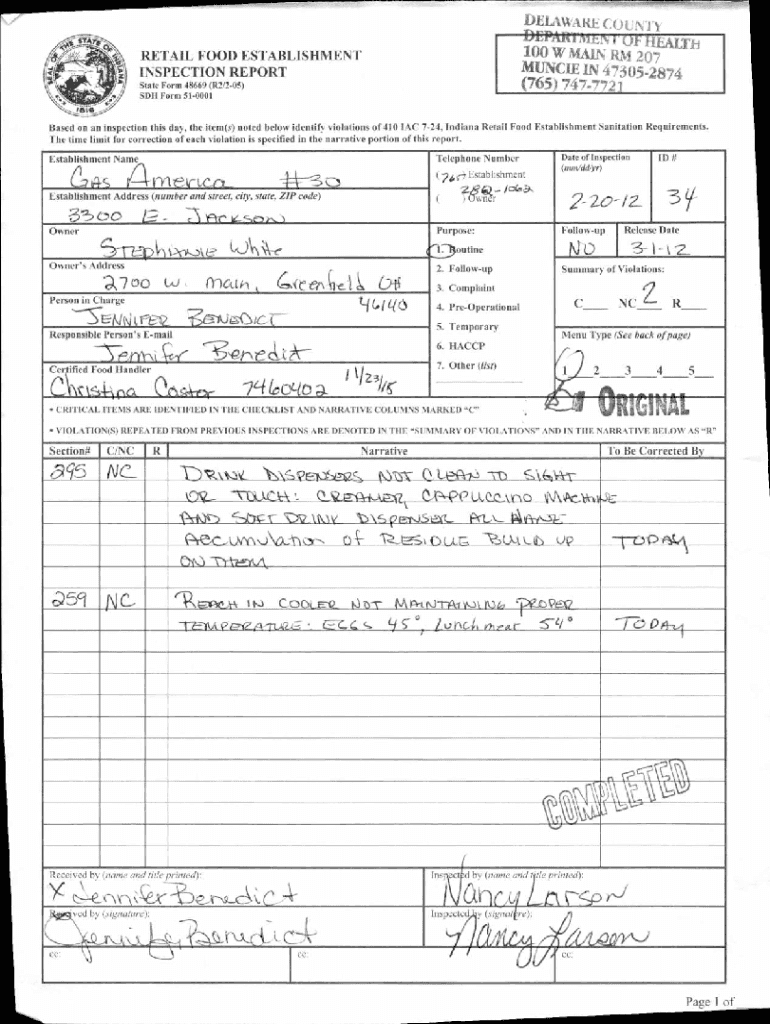 DELAWARE COUNTY
DEPARTMENT OF HEALTH
100 W MAIN RM 207
MUNCIE IN 47305-2874
(765) 747-7721
SEAL OF THE STATE OF INDIANA
1816
RETAIL FOOD ESTABLISHMENT
INSPECTION REPORT
State Form 48669 (R2/2-05)
SDH Form 51-0001
Based on an inspection this day, the item(s) noted below identify violations of 410 IAC 7-24, Indiana Retail Food Establishment Sanitation Requirements.
The time limit for correction of each violation is specified in the narrative portion of this report.
Establishment Name
Gas America #30
Telephone Number
(765) Establishment
282-1062
( ) Owner
Date of Inspection
(mm/dd/yr)
2-20-12
ID #
34
Establishment Address (number and street, city, state, ZIP code)
3300 E. Jackson
Owner
Stephanie White
Purpose:
1. Routine
2. Follow-up
3. Complaint
4. Pre-Operational
5. Temporary
6. HACCP
7. Other (list)
Follow-up
NO
Release Date
3-1-12
Owner's Address
2700 W. Main, Greenfield
46140
Summary of Violations:
C NC 2 R
Person in Charge
Jennifer Benedict
Responsible Person's E-mail
Jennifer Benedict
Menu Type (See back of page)
1 2 3 4 5
Certified Food Handler
Christina Castor 7460402 11/23/15
ORIGINAL
• CRITICAL ITEMS ARE IDENTIFIED IN THE CHECKLIST AND NARRATIVE COLUMNS MARKED "C"
• VIOLATION(S) REPEATED FROM PREVIOUS INSPECTIONS ARE DENOTED IN THE "SUMMARY OF VIOLATIONS" AND IN THE NARRATIVE BELOW AS "R"
Section# C/NC R Narrative To Be Corrected By
295 NC DRINK DISPENSERS NOT CLEAN TO SIGHT
OR TOUCH: CREAMER, CAPPUCCINO MACHINE
AND SOFT DRINK DISPENSER ALL HAVE
Accumulation of RESIDUE BUILD UP TODAY
ON THEM
259 NC REACH IN COOLER NOT MAINTAINING PROPER
TEMPERATURE: EGGS 45°, Lunchmeat 54° TODAY
COMPLETED
Received by (name and title printed):
X Jennifer Benedict
Inspected by (name and title printed):
Nancy Larson
Received by (signature):
Jennifer Benedict
Inspected by (signature):
Nancy Larson
cc: cc: cc:
Page 1 of